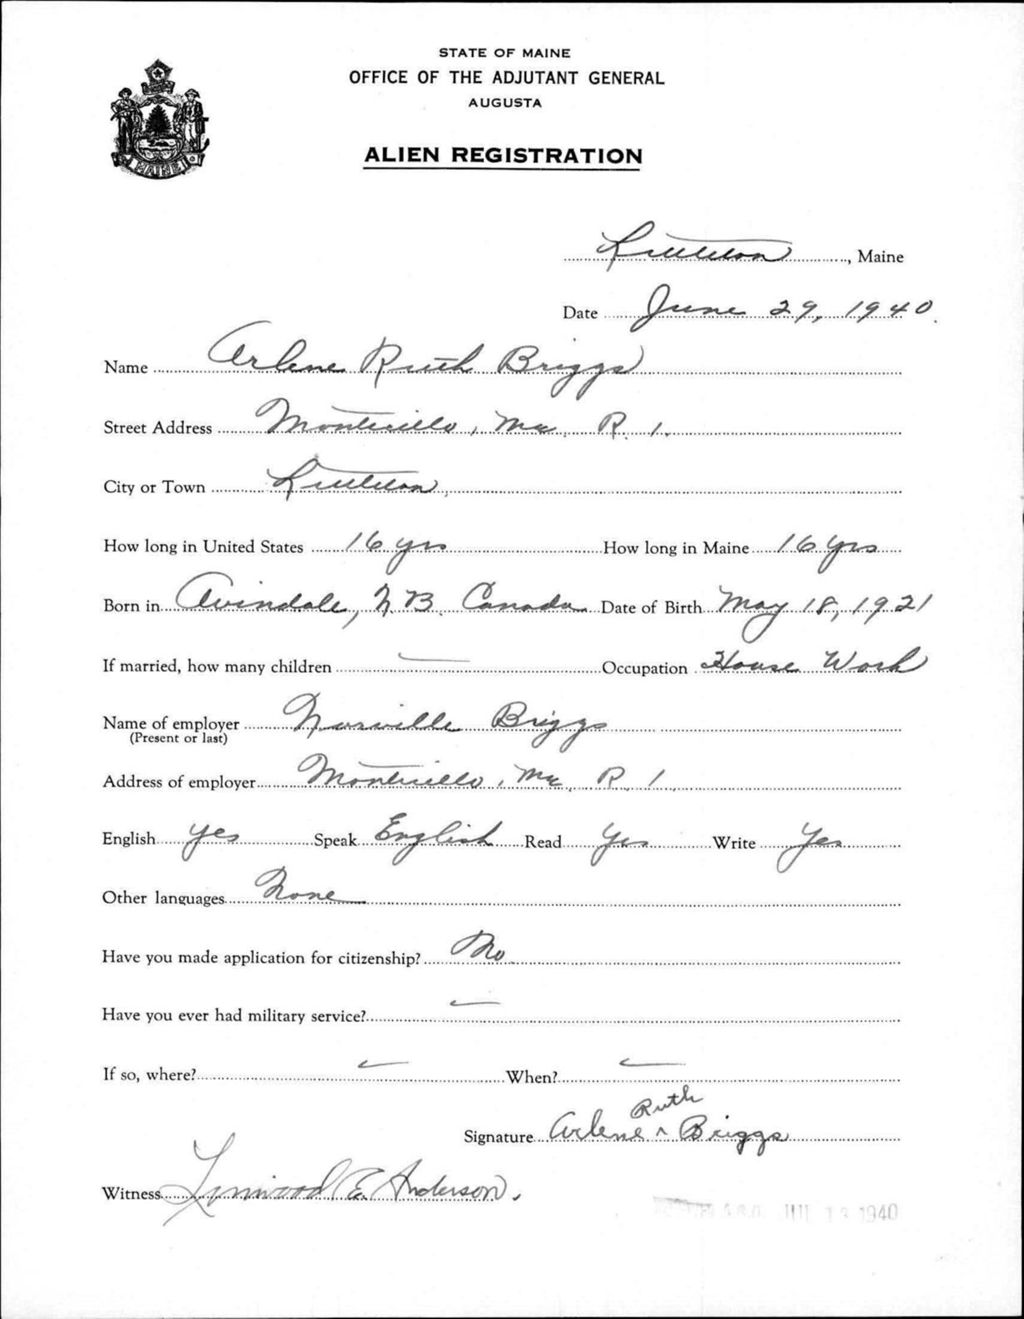 STATE OF MAINE
OFFICE OF THE ADJUTANT GENERAL
AUGUSTA
ALIEN REGISTRATION
MAINE
Littleton, Maine
Date June 29, 1940.
Name Arlene Ruth Briggs
Street Address Monticello, Me. R. 1.
City or Town Littleton,
How long in United States 16 yrs How long in Maine 16 yrs
Born in Avindale, N.B. Canada Date of Birth May 18, 1921
If married, how many children — Occupation House Work
Name of employer Norville Briggs
(Present or last)
Address of employer Monticello, Me. R. 1.
English yes Speak English Read Yes Write Yes
Other languages None
Have you made application for citizenship? No
Have you ever had military service? —
If so, where? — When? —
Signature Arlene ^ Ruth Briggs
Witness Linwood E. Anderson.
A.G.O. JUL 13 1940